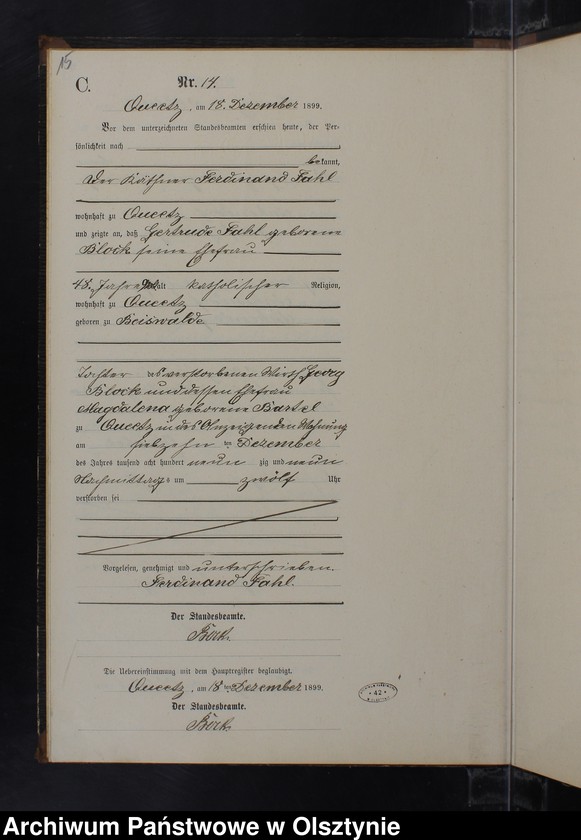 15
C. Nr. 14.
Queetz, am 18. Dezember 1899.
Vor dem unterzeichneten Standesbeamten erschien heute, der Per-
sönlichkeit nach
bekannt,
der Käthner Ferdinand Fahl
wohnhaft zu Queetz
und zeigte an, daß Gertrude Fahl geborene
Block seine Ehefrau
48 Jahre alt katholischer Religion,
wohnhaft zu Queetz
geboren zu Beiswalde
Tochter des verstorbenen Wirth Georg
Block und dessen Ehefrau
Magdalena geborene Bartel
zu Queetz in des Anzeigenden Wohnung
am siebzehn ten Dezember
des Jahres tausend acht hundert neun zig und neun
Nachmittags um zwölf Uhr
verstorben sei
Vorgelesen, genehmigt und unterschrieben.
Ferdinand Fahl.
Der Standesbeamte.
Böck.
Die Uebereinstimmung mit dem Hauptregister beglaubigt.
Queetz, am 18 ten Dezember 1899.
Der Standesbeamte.
Böck.
42
Archiwum Państwowe w Olsztynie